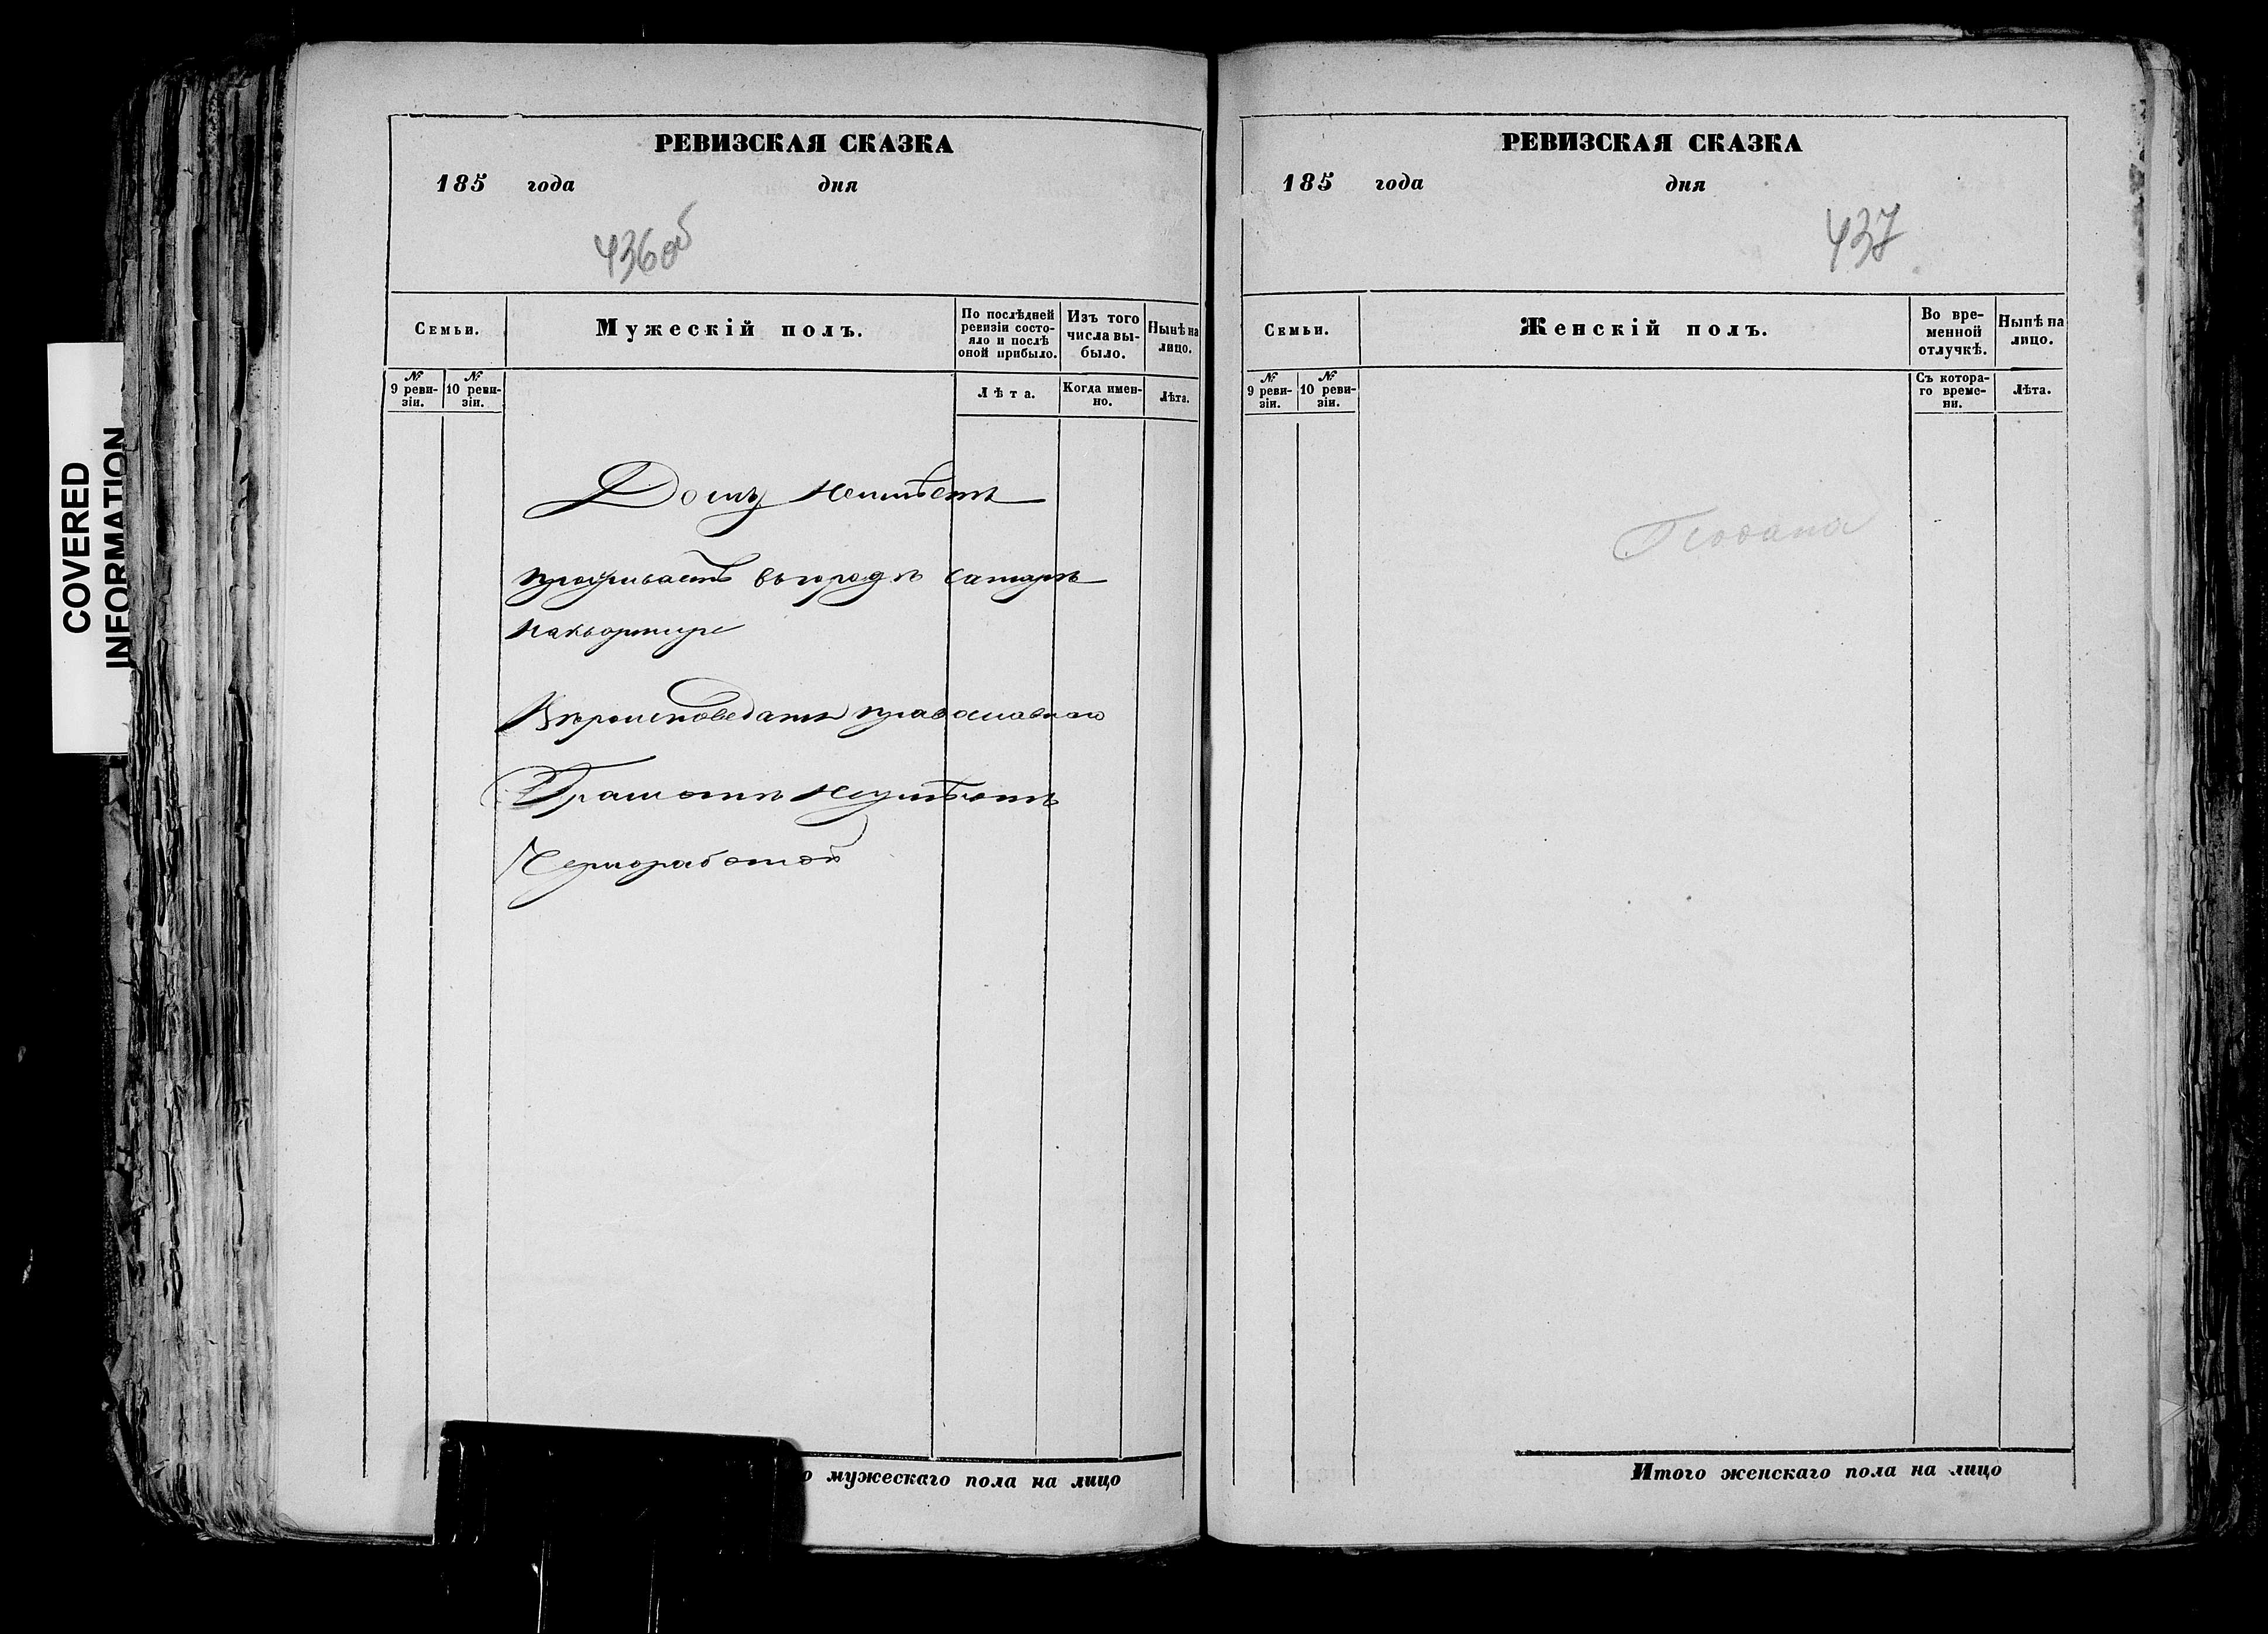 COVERED
INFORMATION
РЕВИЗСКАЯ СКАЗКА
185 года дня
436об
Семьи.
Мужескій полъ.
По послѣдней ревизіи состояло и послѣ оной прибыло.
Изъ того числа выбыло.
Нынѣ на лицо.
№ 9 ревизіи.
№ 10 ревизіи.
Лѣта.
Когда именно.
Лѣта.
Дому неимѣетъ
проживаетъ вьгородѣ Самарѣ
наквартире
Вѣроисповеданія православнаго
Грамотѣ неумѣютъ
Черноработой
о мужескаго пола на лицо
РЕВИЗСКАЯ СКАЗКА
185 года дня
437
Семьи.
Женскій полъ.
Во временной отлучкѣ.
Нынѣ на лицо.
№ 9 ревизіи.
№ 10 ревизіи.
Съ котораго времени.
Лѣта.
Итого женскаго пола на лицо